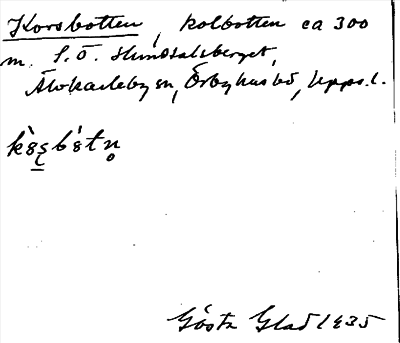 Korsbotten, kolbotten ca 300
m. S.Ö. Hundsalsberget,
Älvkarleby sn, Örbyhus hd, Upps.l.
Gösta Glad 1935